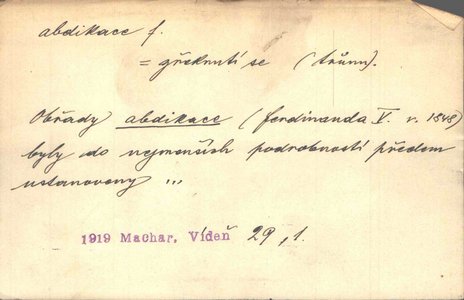 abdikace f.
= zřeknutí se (trůnu).
Obřady abdikace (Ferdinanda V. r. 1848)
byly do nejmenších podrobností předem
ustanoveny ...
1919 Machar, Vídeň 29,1.